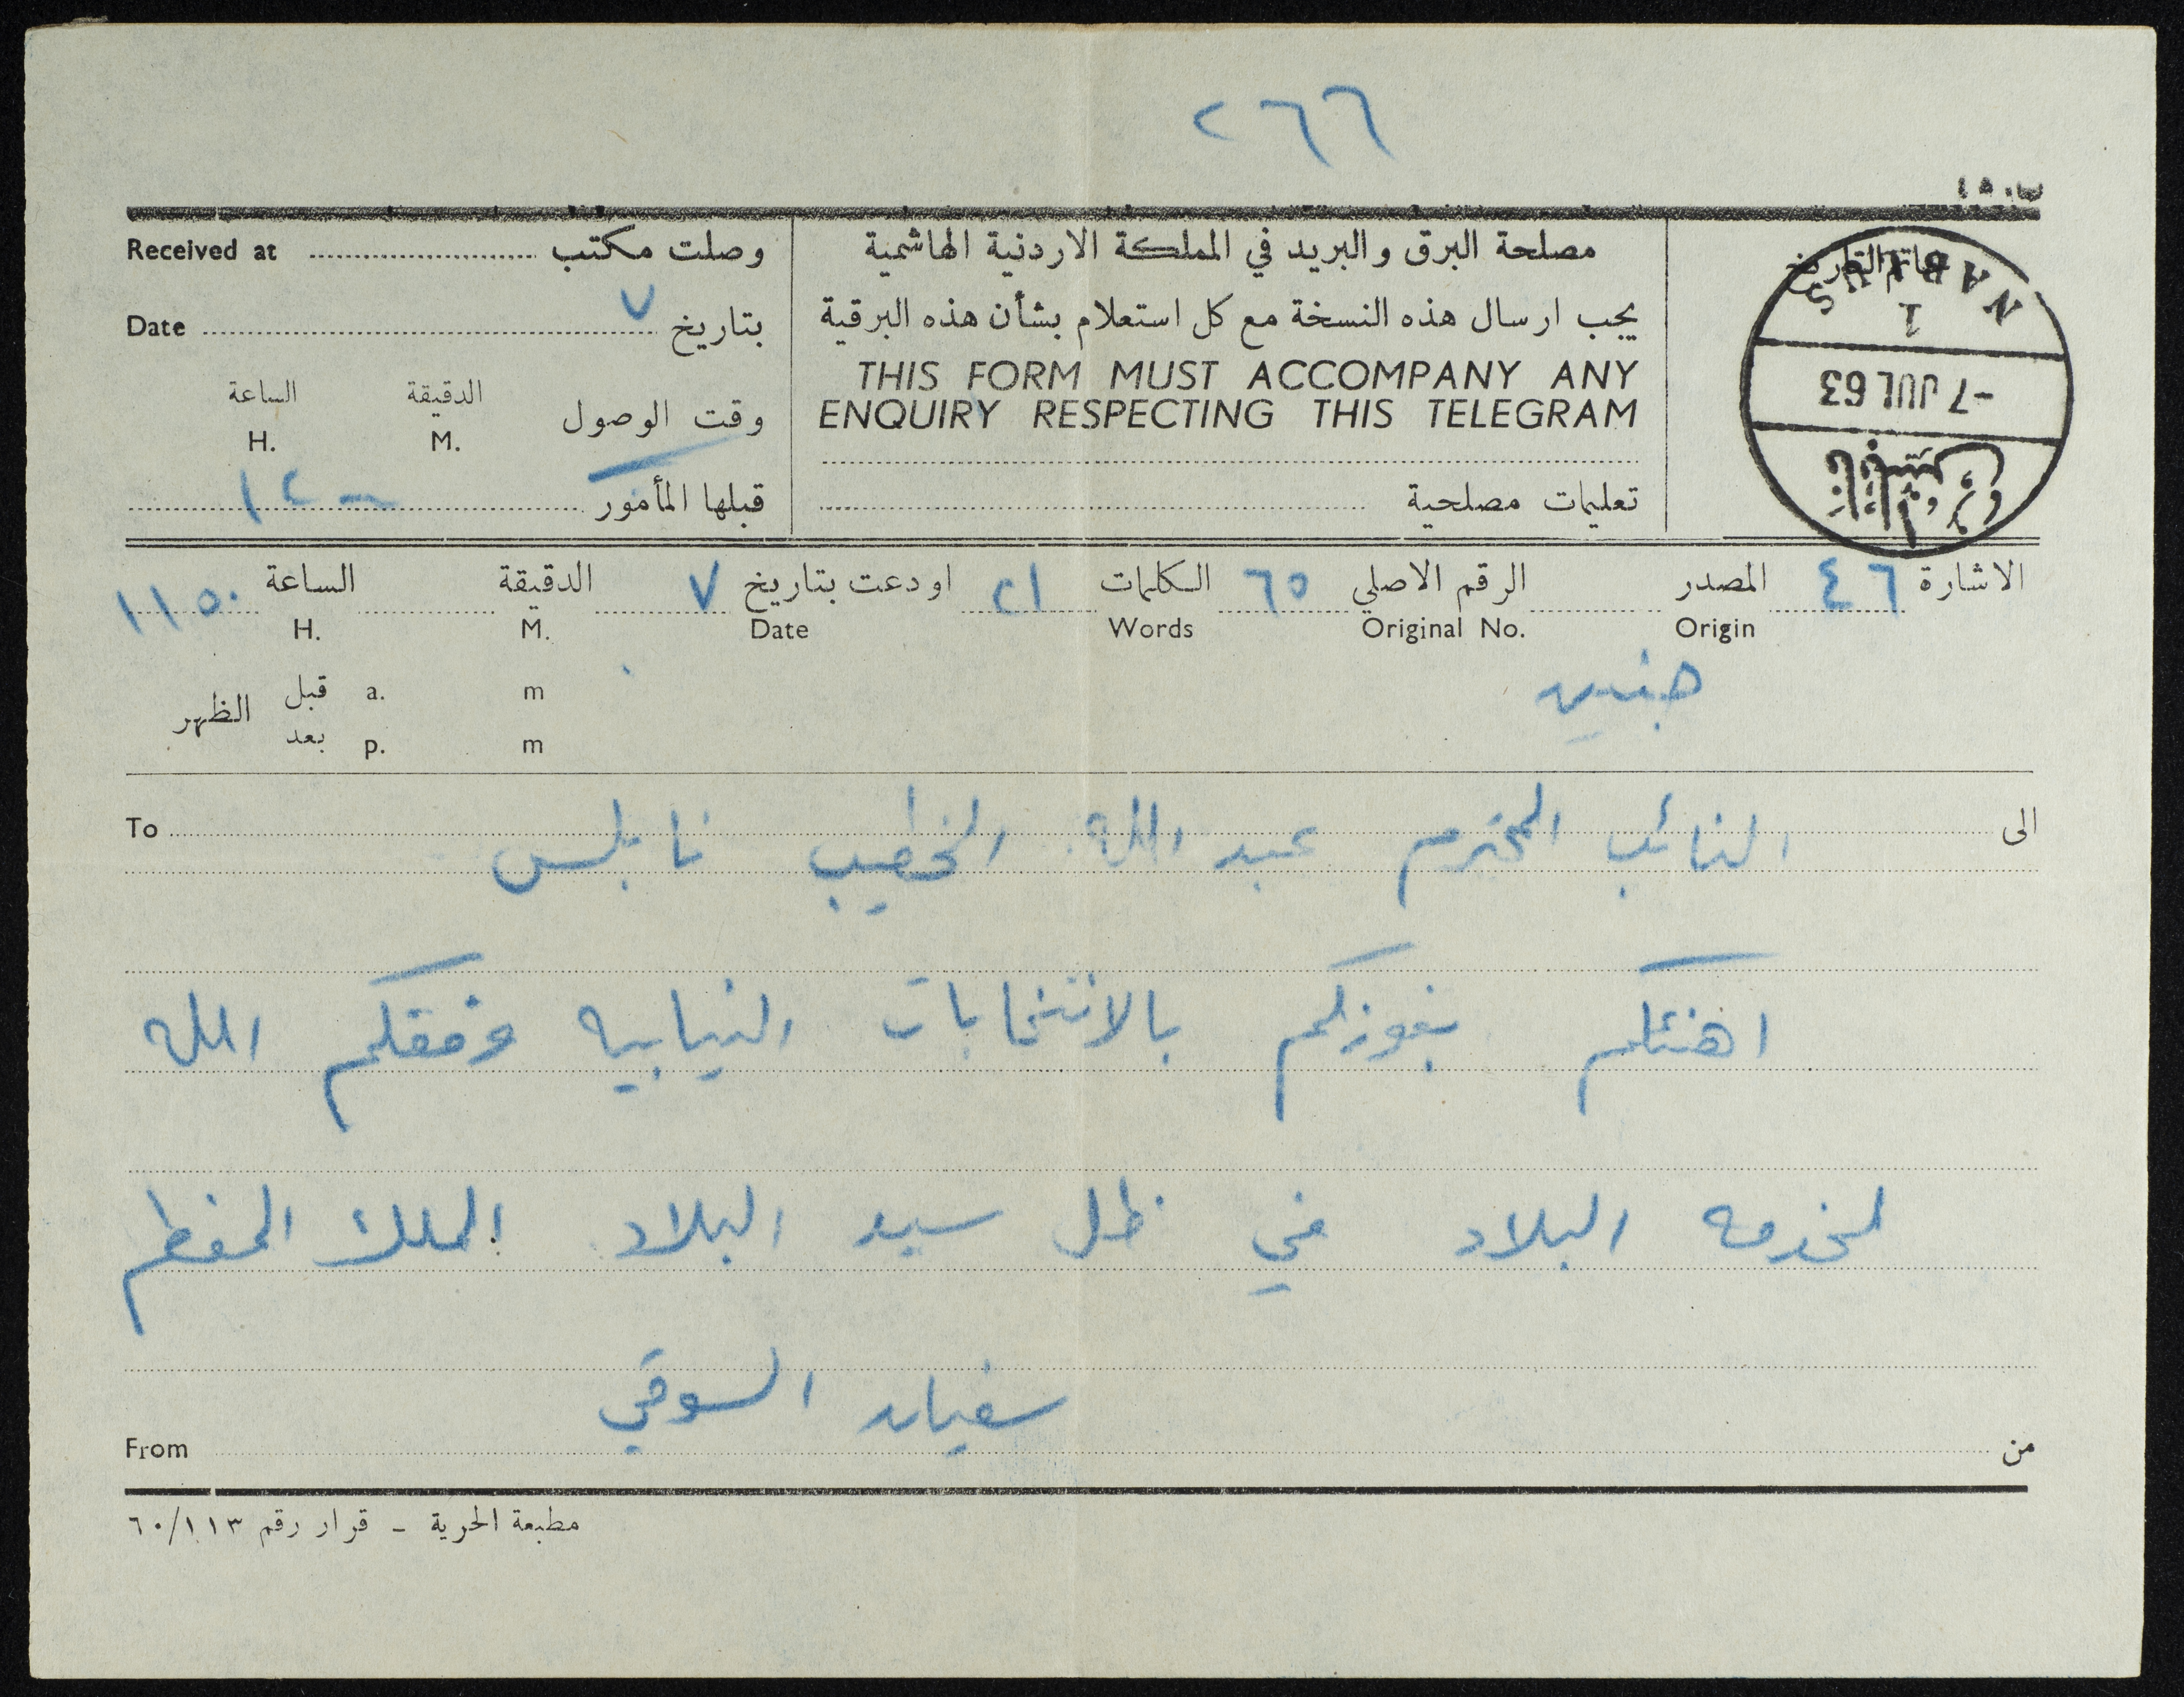 ٢٦٦
مصلحة البرق والبريد في المملكة الاردنية الهاشمية
يجب ارسال هذه النسخة مع كل استعلام بشأن هذه البرقية
THIS FORM MUST ACCOMPANY ANY
ENQUIRY RESPECTING THIS TELEGRAM
تعليمات مصلحية
خاتم التاريخ
NABLUS
1
-7 JUL 63
نابلس
وصلت مكتب Received at
بتاريخ ٧ Date
الدقيقة الساعة
وقت الوصول M. H.
قبلها المأمور ١٢
الاشارة ٤٦ المصدر الرقم الاصلي ٦٥ الكلمات ٢١ اودعت بتاريخ ٧ الدقيقة الساعة ١١٥٠
Origin Original No. Words Date M. H.
جنين
قبل a. m
الظهر
بعد p. m
الى النائب المحترم عبد الله الخطيب نابلس To
اهنئكم بفوزكم بالانتخابات النيابيه وفقكم الله
لخدمه البلاد في ظل سيد البلاد الملك المعظم
سفيان السوقي
من From
مطبعة الحرية - قرار رقم ٦٠/١١٣